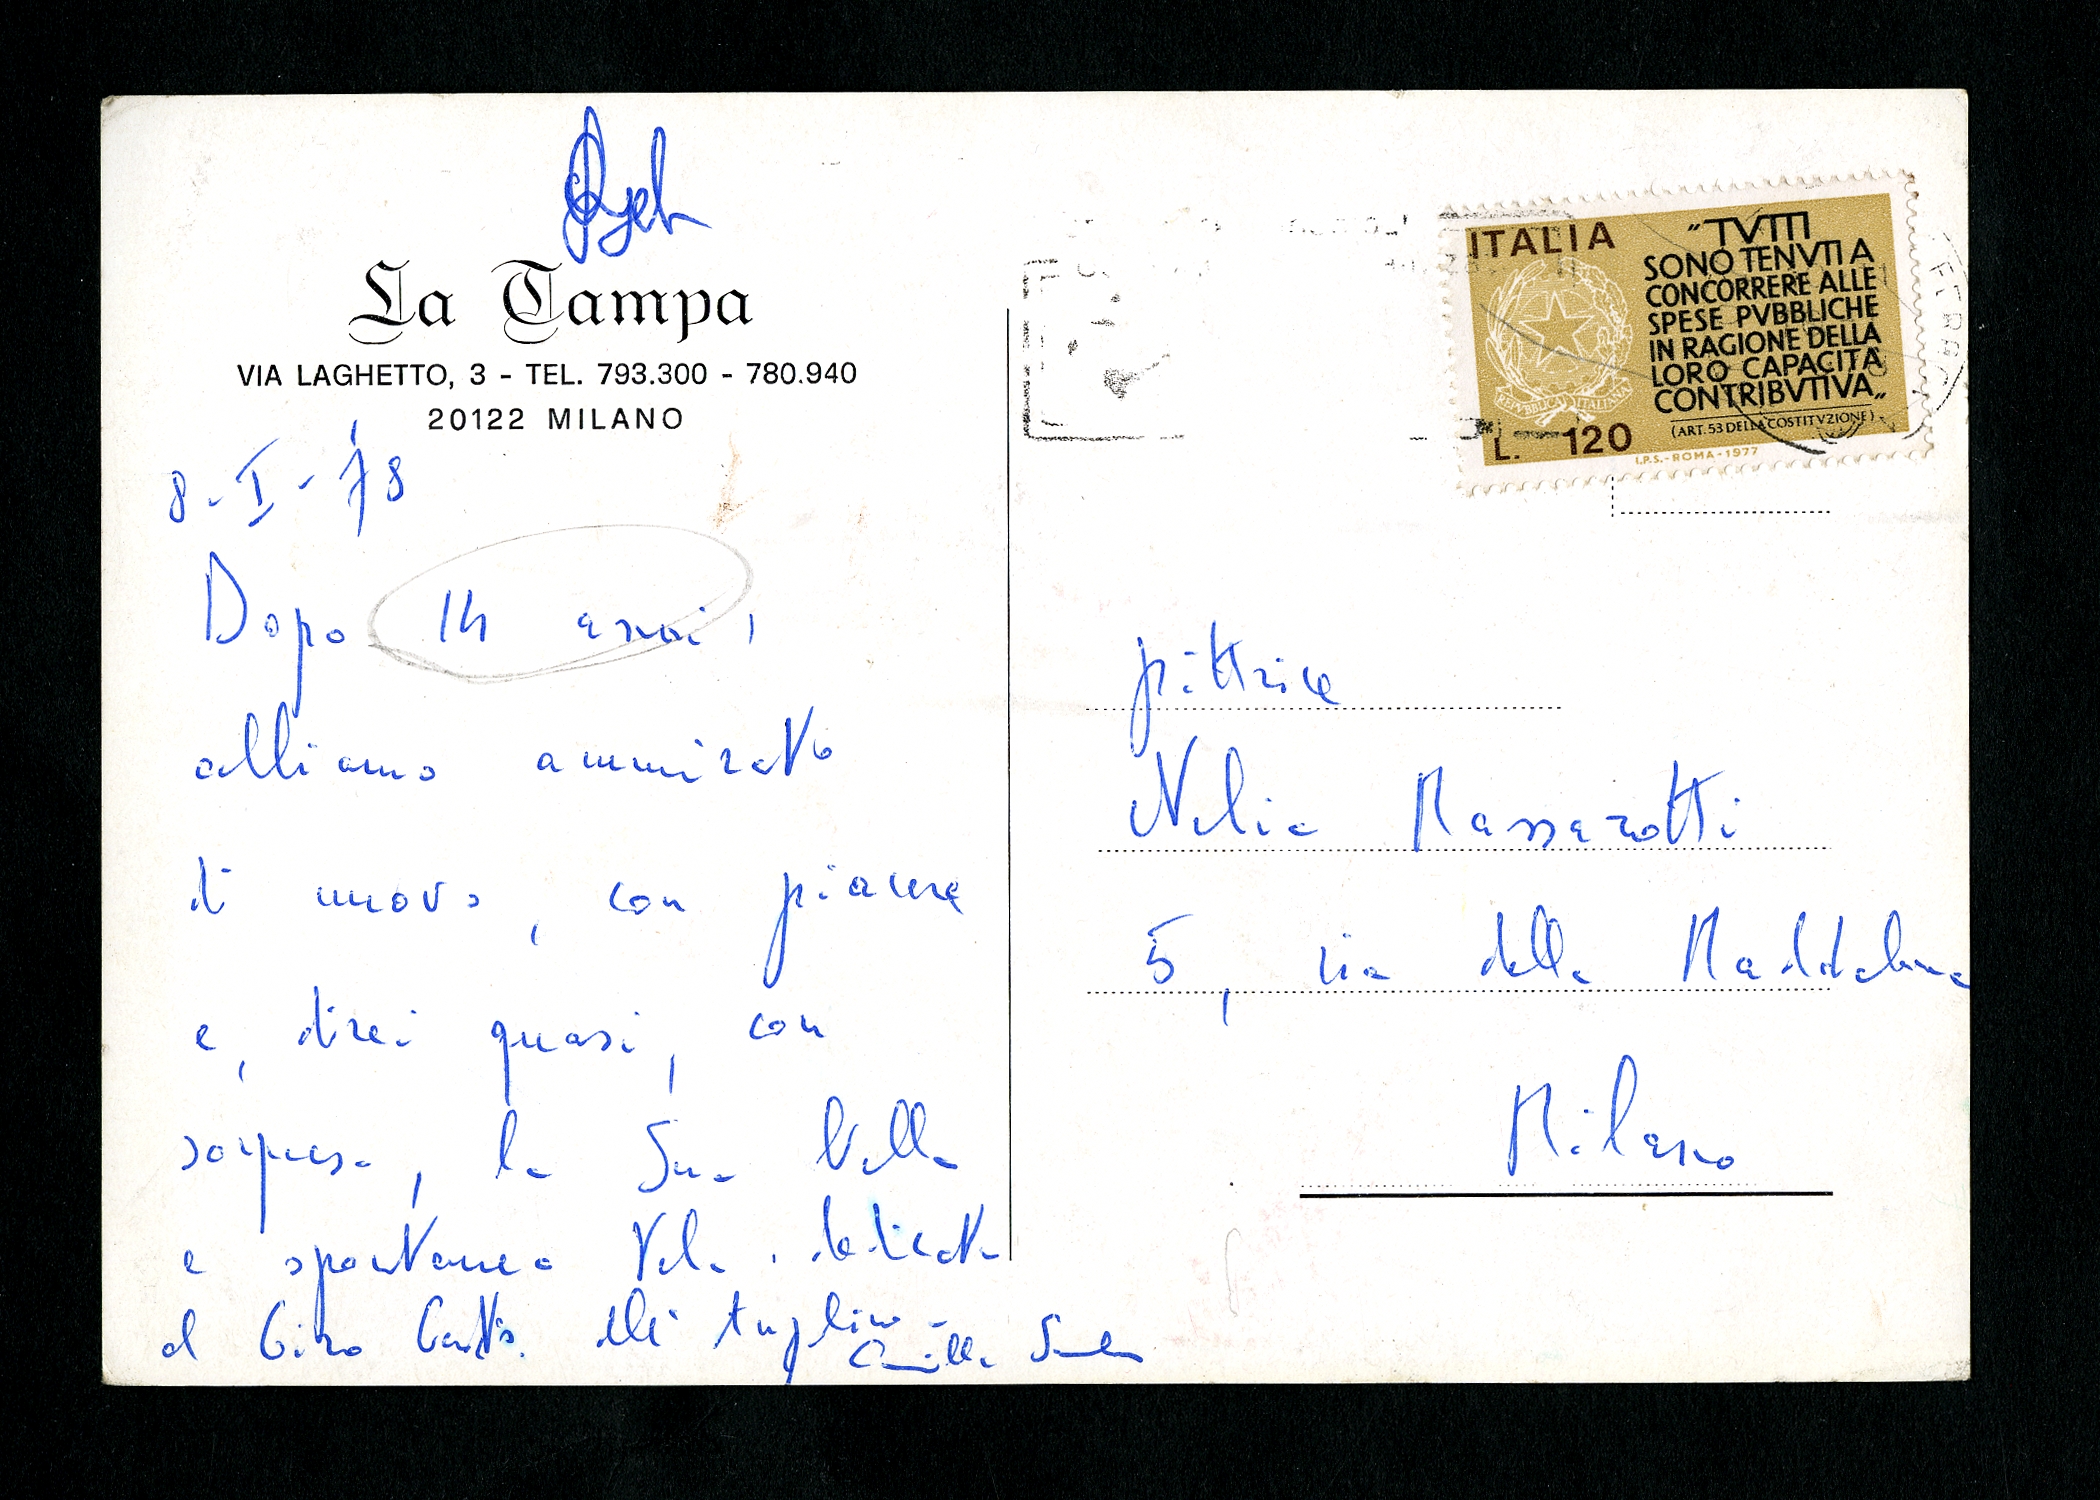 La Campa
VIA LAGHETTO, 3 - TEL. 793.300 - 780.940
20122 MILANO
8-I-78
Dopo 14 anni,
abbiamo ammirato
di nuovo, con piacere
e, direi quasi, con
sorpresa, la Sua bella
e spontanea tela dedicata
al Giro
ITALIA
"TVTTI
SONO TENVTI A
CONCORRERE ALLE
SPESE PVBBLICHE
IN RAGIONE DELLA
LORO CAPACITÀ
CONTRIBVTIVA„
(ART. 53 DELLA COSTITVZIONE)
REPVBBLICA ITALIANA
L. 120
I.P.S.-ROMA-1977
pittrice
Nelia Massarotti
5, via della Maddalena
Milano